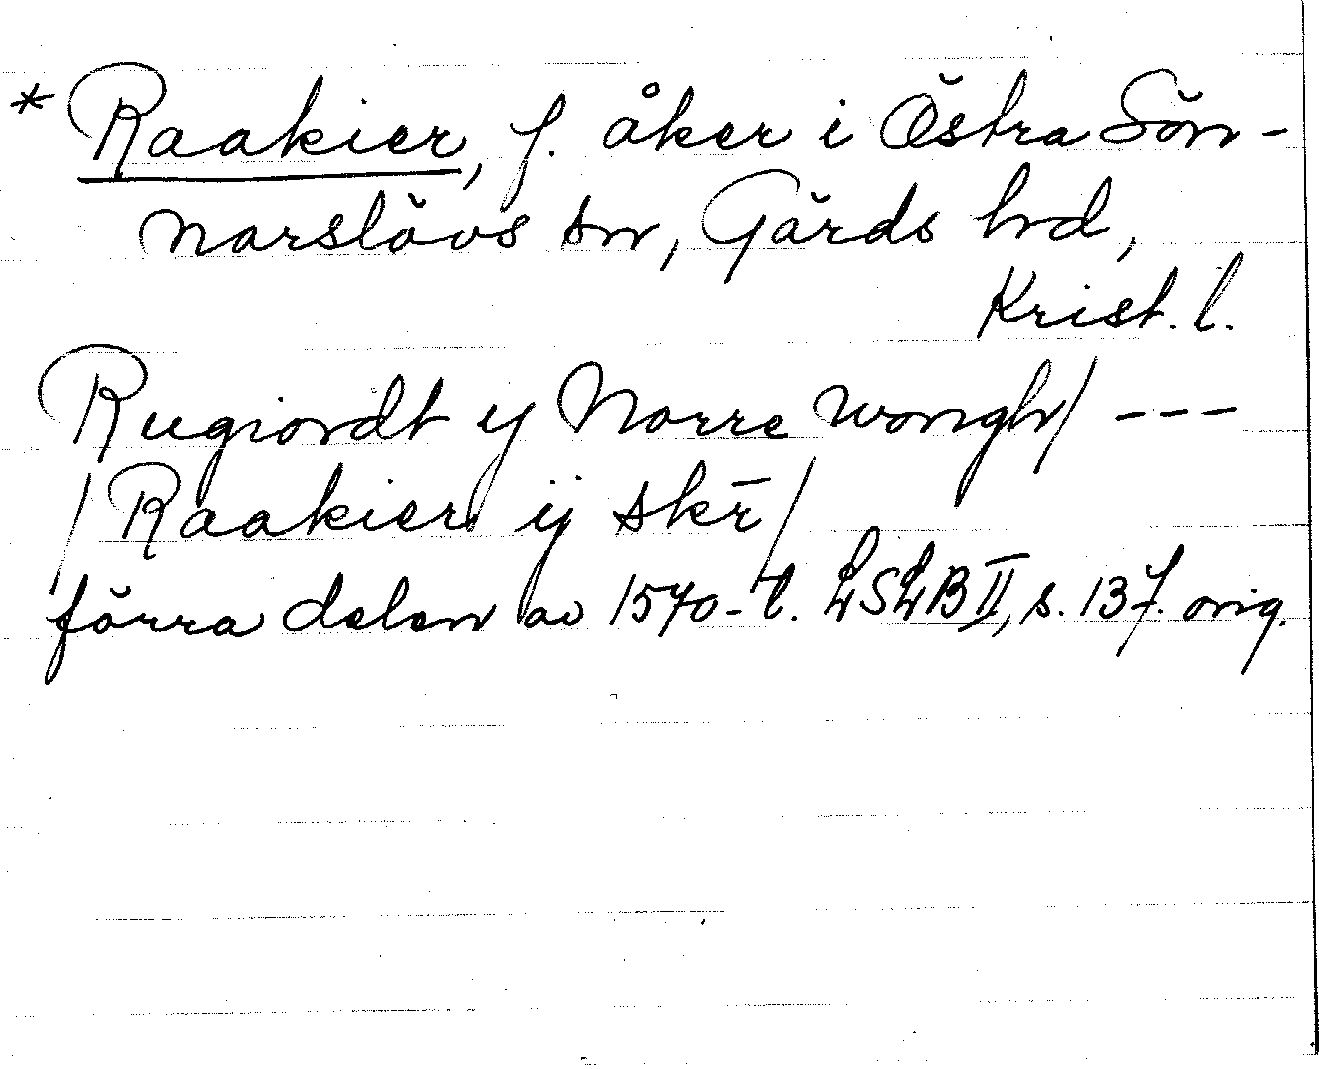 * Raakier, f. åker i Östra Sön-
narslövs sn, Gärds hd,
Krist. l.
Rugiordt y Norre wongh/ ---
/Raakier ij skr̄/
förra delen av 1570-t. LSLB II, s. 137. orig.